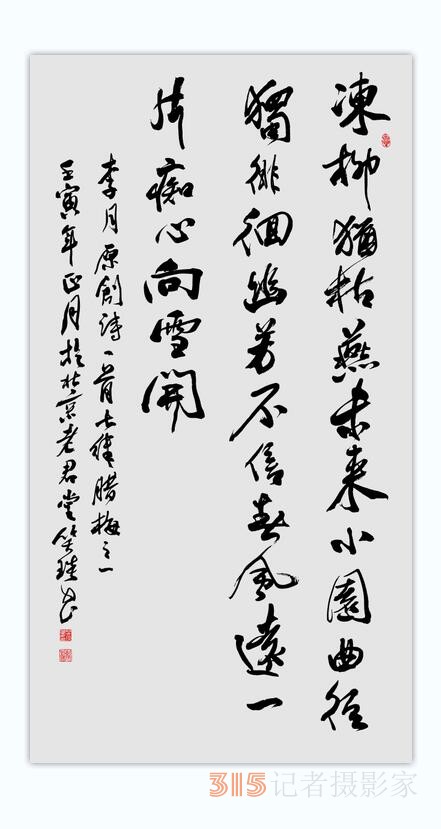 凍柳猶枯燕未來小園曲徑
獨徘徊幽芳不信春風遠一
片痴心向雪開
李月原創詩一首七绝腊梅之一
壬寅年正月於北京老君堂
315记者摄影家